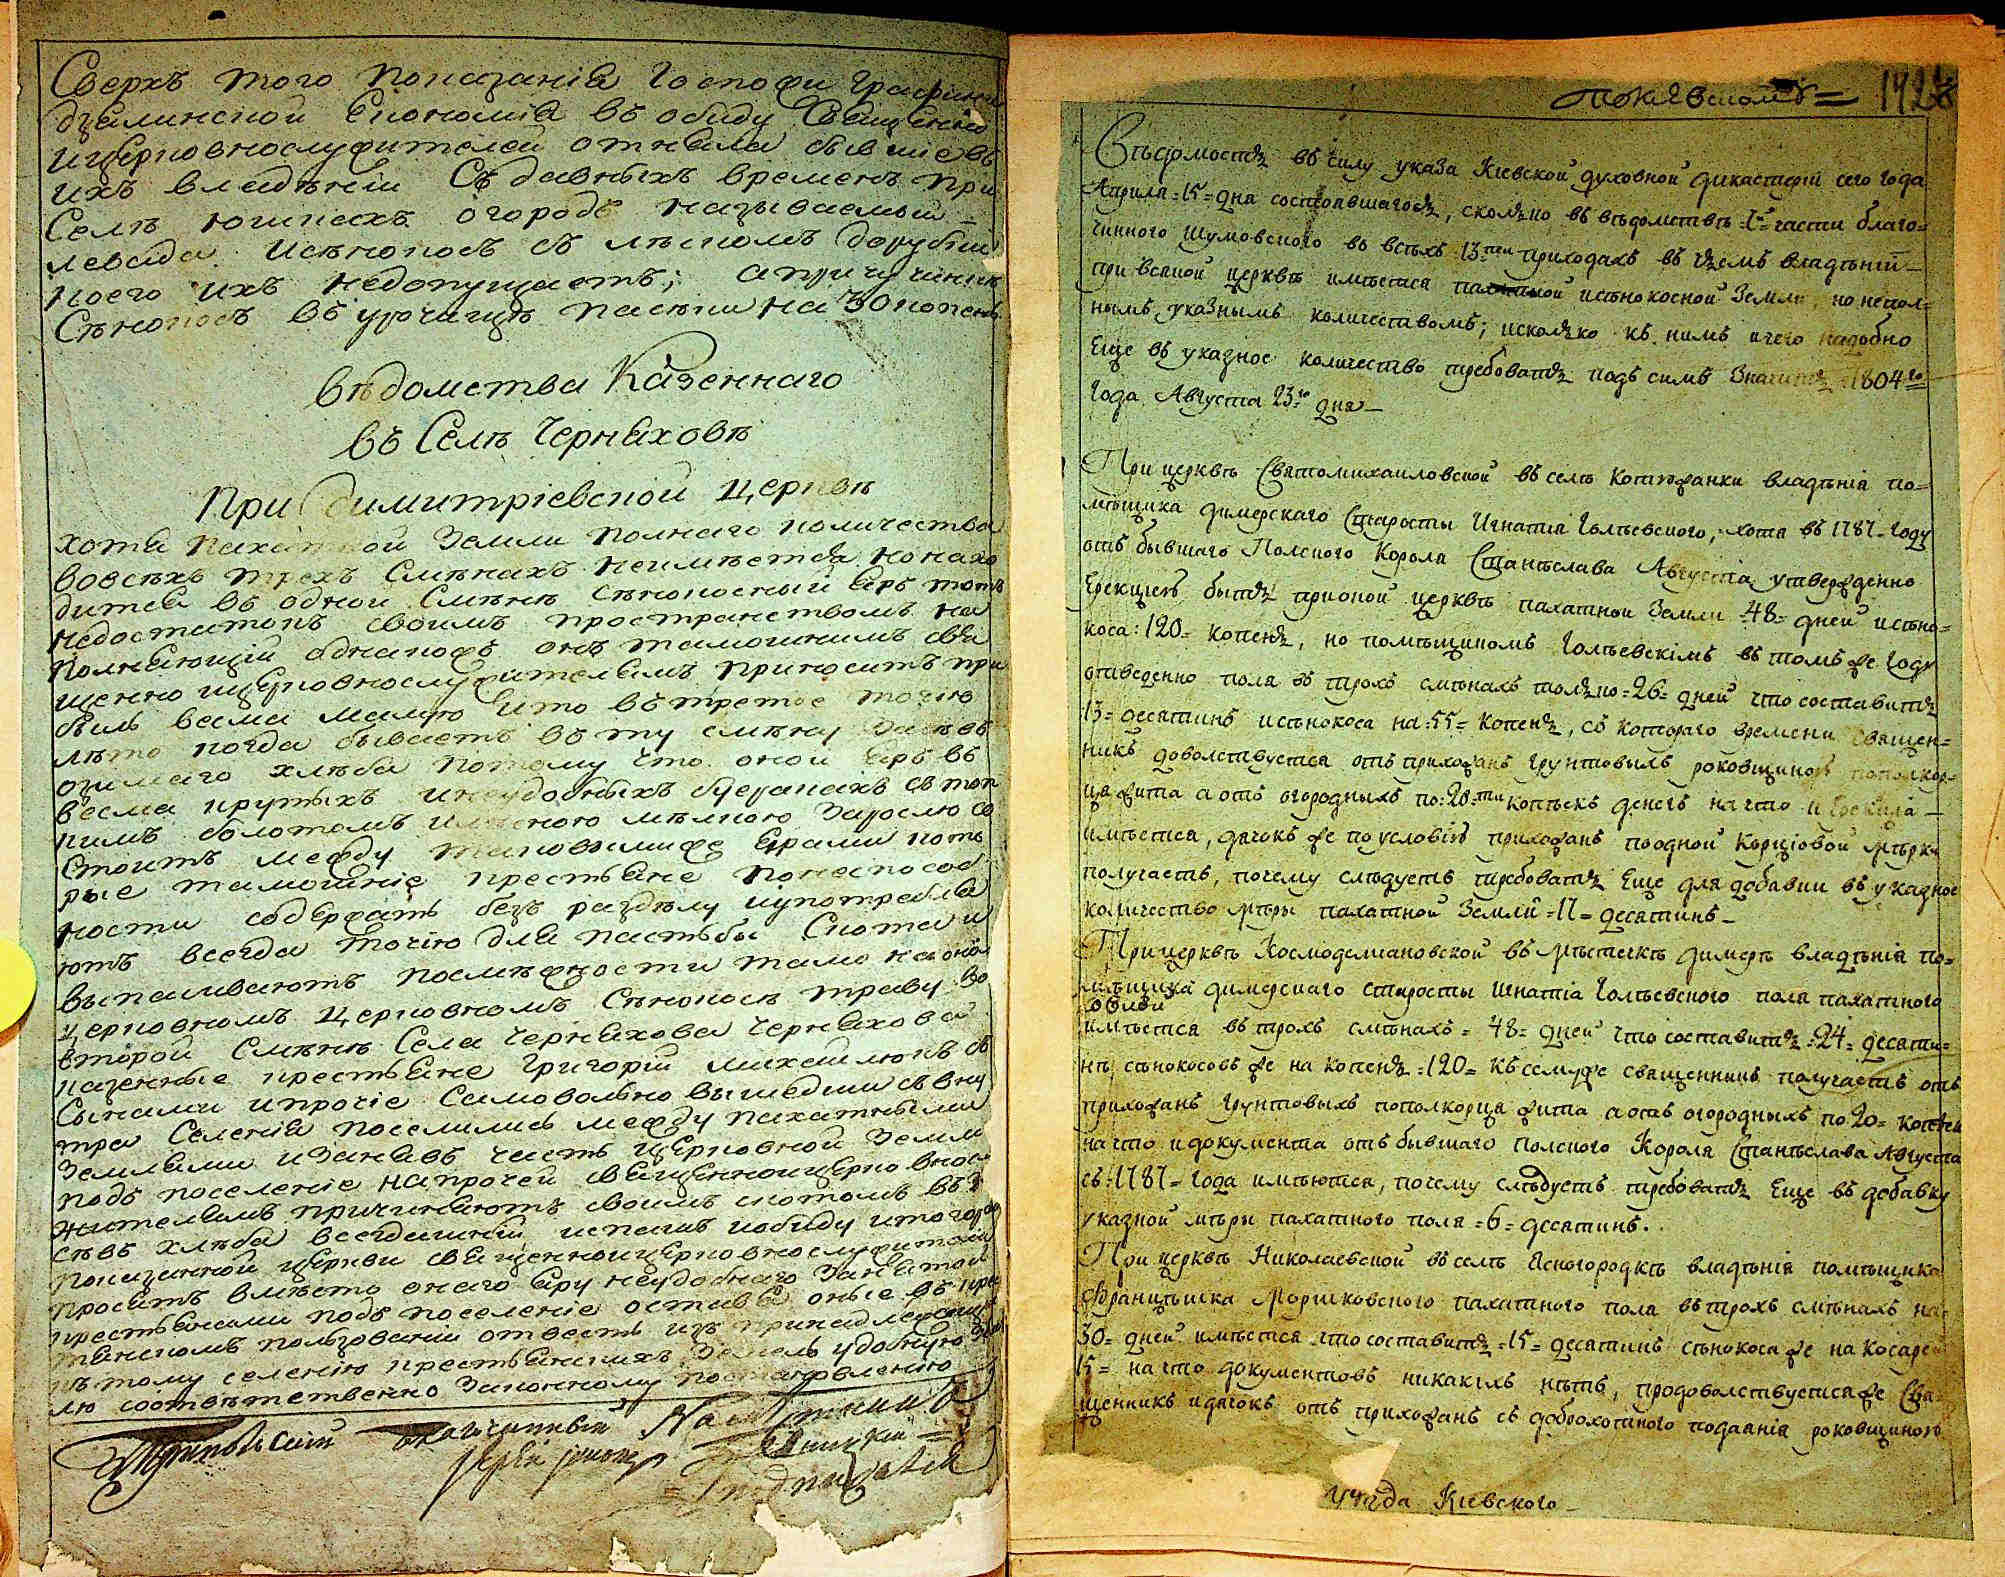 Сверхъ того показанія Госпожи Графини
дзелинской Економія въ обиду Священно
ицерковнослужителей отняла бывшіе въ
ихъ владѣніи Съ давныхъ временъ при
Селѣ огородъ называемый
левада исѣнокосъ съ лѣскомъ
коего ихъ недопущаетъ; а
Сѣнокосъ въ урочищѣ пасѣки на 30 копенъ
вѣдомства Казеннаго
въ Селѣ Черняховѣ
При Димитріевской Церквѣ
хотя пахатной Земли полнаго количества
вовсѣхъ трехъ Смѣнахъ неимѣется но нахо
дится въ одной Смѣнѣ сѣнокосный яръ тотъ
недостатокъ своимъ пространствомъ на
полняющій однакожъ онъ тамошнимъ свя
щенно ицерковнослужителямъ приноситъ при
быль весма малую ито въ третое точію
лѣто когда бываетъ въ ту смѣну засѣвъ
озимаго хлѣба потому что оной яръ въ
весма крутыхъ инеудобныхъ буеракахъ съ топ
кимъ болотомъ мѣлкою зарослю со
стоитъ между таковымиже ярами кото
рые тамошніе крестьяне понеспособ
ности содержатъ безъ раздѣлу иупотребля
ютъ всегда точію для пастьбы Скота и
выпасываютъ посмѣжности тамо на ономъ
церковномъ Церковномъ Сѣнокосѣ траву Во
второй Смѣнѣ Села Черняхова Черняхова
казенные крестьяне Григорій Михайлюкъ съ
Сынами ипрочіе Самоволно вышедши съ вну
тра Селенія поселились между пахатными
Землями изанявъ часть церковной Земли
подъ поселеніе напрочей священноицерковнос
жителямъ причиняютъ своимъ скотомъ въ
сѣвъ хлѣба всегдашній иобиду
показанной церкви священноицерковнослужители
просятъ вмѣсто онаго яру неудобнаго занятой
крестьянами подъ поселеніе оставя оные въ кре
стьянскомъ ползованіи отвесть изъ принадлежащихъ
къ тому селенію крестьянскихъ Земель удобную Зем
лю соотвѣтственно Законному постановленію
благочинный
токіевскомъ= 142
Вѣдомость въ силу указа Кіевской духовной дикастеріи сего года
Априля =15= дня состоявшагося, сколько въ вѣдомствѣ 1й части благо=
чинного Шумовского во всѣхъ 13ти приходахъ въ чіемъ владѣніи
при всякой церквѣ имѣется пахатной исѣнокосной Земли, но непол=
нымъ указнымъ количествомъ; исколько къ нимъ ичего надобно
Еще въ указное количество требовать подъ симъ Значитъ 1804го
Года Августа 23го дня
При церквѣ Святомихаиловской въ селѣ Котюжанки владѣнія по=
мѣщика димерскаго Старосты Игнатія Голѣевского, хотя въ 1787= Году
отъ бывшаго Полского Короля Станѣслава Августа утвержденно
Ерекціею быть прионой церквѣ пахатнои Земли =48= дней исѣно=
коса: 120= копенъ, но помѣщикомъ Голѣевскімъ въ томъ же Году
отведенно поля въ трохъ смѣнахъ толко =26= дней что составитъ
13= десятинъ исѣнокоса на =55= копенъ, съ котораго времени Священ=
никъ доволствуется отъ прихожанъ Грунтовыхъ роковщиною пополкор
ца жита а отъ огородныхъ по: 20= ти копѣекъ денегъ начто и Ерекція
имѣется, дячокъ же по условію прихожанъ поодной Корціовой мѣрки
получаетъ, почему слѣдуетъ требовать Еще для добавки въ указное
количество мѣры пахатной Земли =11= десятинъ
При церквѣ Космодеміановской въ мѣстечкѣ димерѣ владѣнія по=
мѣщика димерскаго старосты Игнатія Голѣевского поля пахатного
имѣется въ трохъ смѣнахъ = 48= дней что составитъ =24= десяти=
нѣ, сѣнокосовъ же на копенъ =120= къ семуже священникъ получаетъ отъ
прихожанъ Грунтовыхъ пополкорца жита а отъ огородныхъ по 20= копѣекъ
на что идокумента отъ бывшаго полского Короля Станѣслава Августа
съ: 1787= года имѣются, почему слѣдуетъ требовать Еще въ добавку
указной мѣры пахатного поля =6= десятинъ.
При церквѣ Николаевской въ селѣ Ясногородкѣ владѣнія помѣщика
Францѣшка Моршковского пахатного поля въ трохъ смѣнахъ на
30= дней имѣется что составитъ =15= десятинъ сѣнокоса же на косарей
15= на что документовъ никакіхъ нѣтъ, продоволствуется же Свя=
щенникъ идячокъ отъ прихожанъ съ доброхотного подаянія роковщиною
уѣзда Кіевского